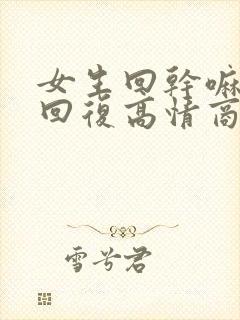 女生回幹嘛
回復高情商
雪兮君